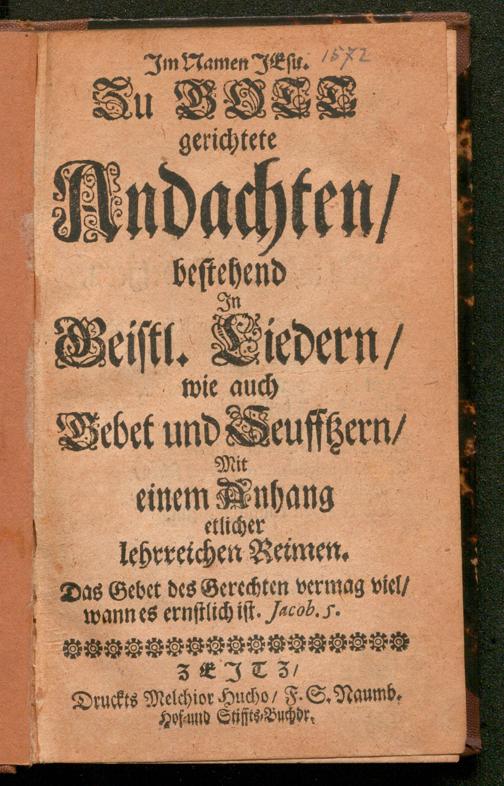 Im Namen JEsu. 1572
Zu GOTT
gerichtete
Andachten/
bestehend
In
Geistl. Liedern/
wie auch
Gebet und Seufftzern/
Mit
einem Anhang
etlicher
lehrreichen Reimen.
Das Gebet des Gerechten vermag viel/
wann es ernstlich ist. Jacob. 5.
ZEJTZ/
Druckts Melchior Hucho/ F. S. Naumb.
Hof- und Stiffts-Buchdr.